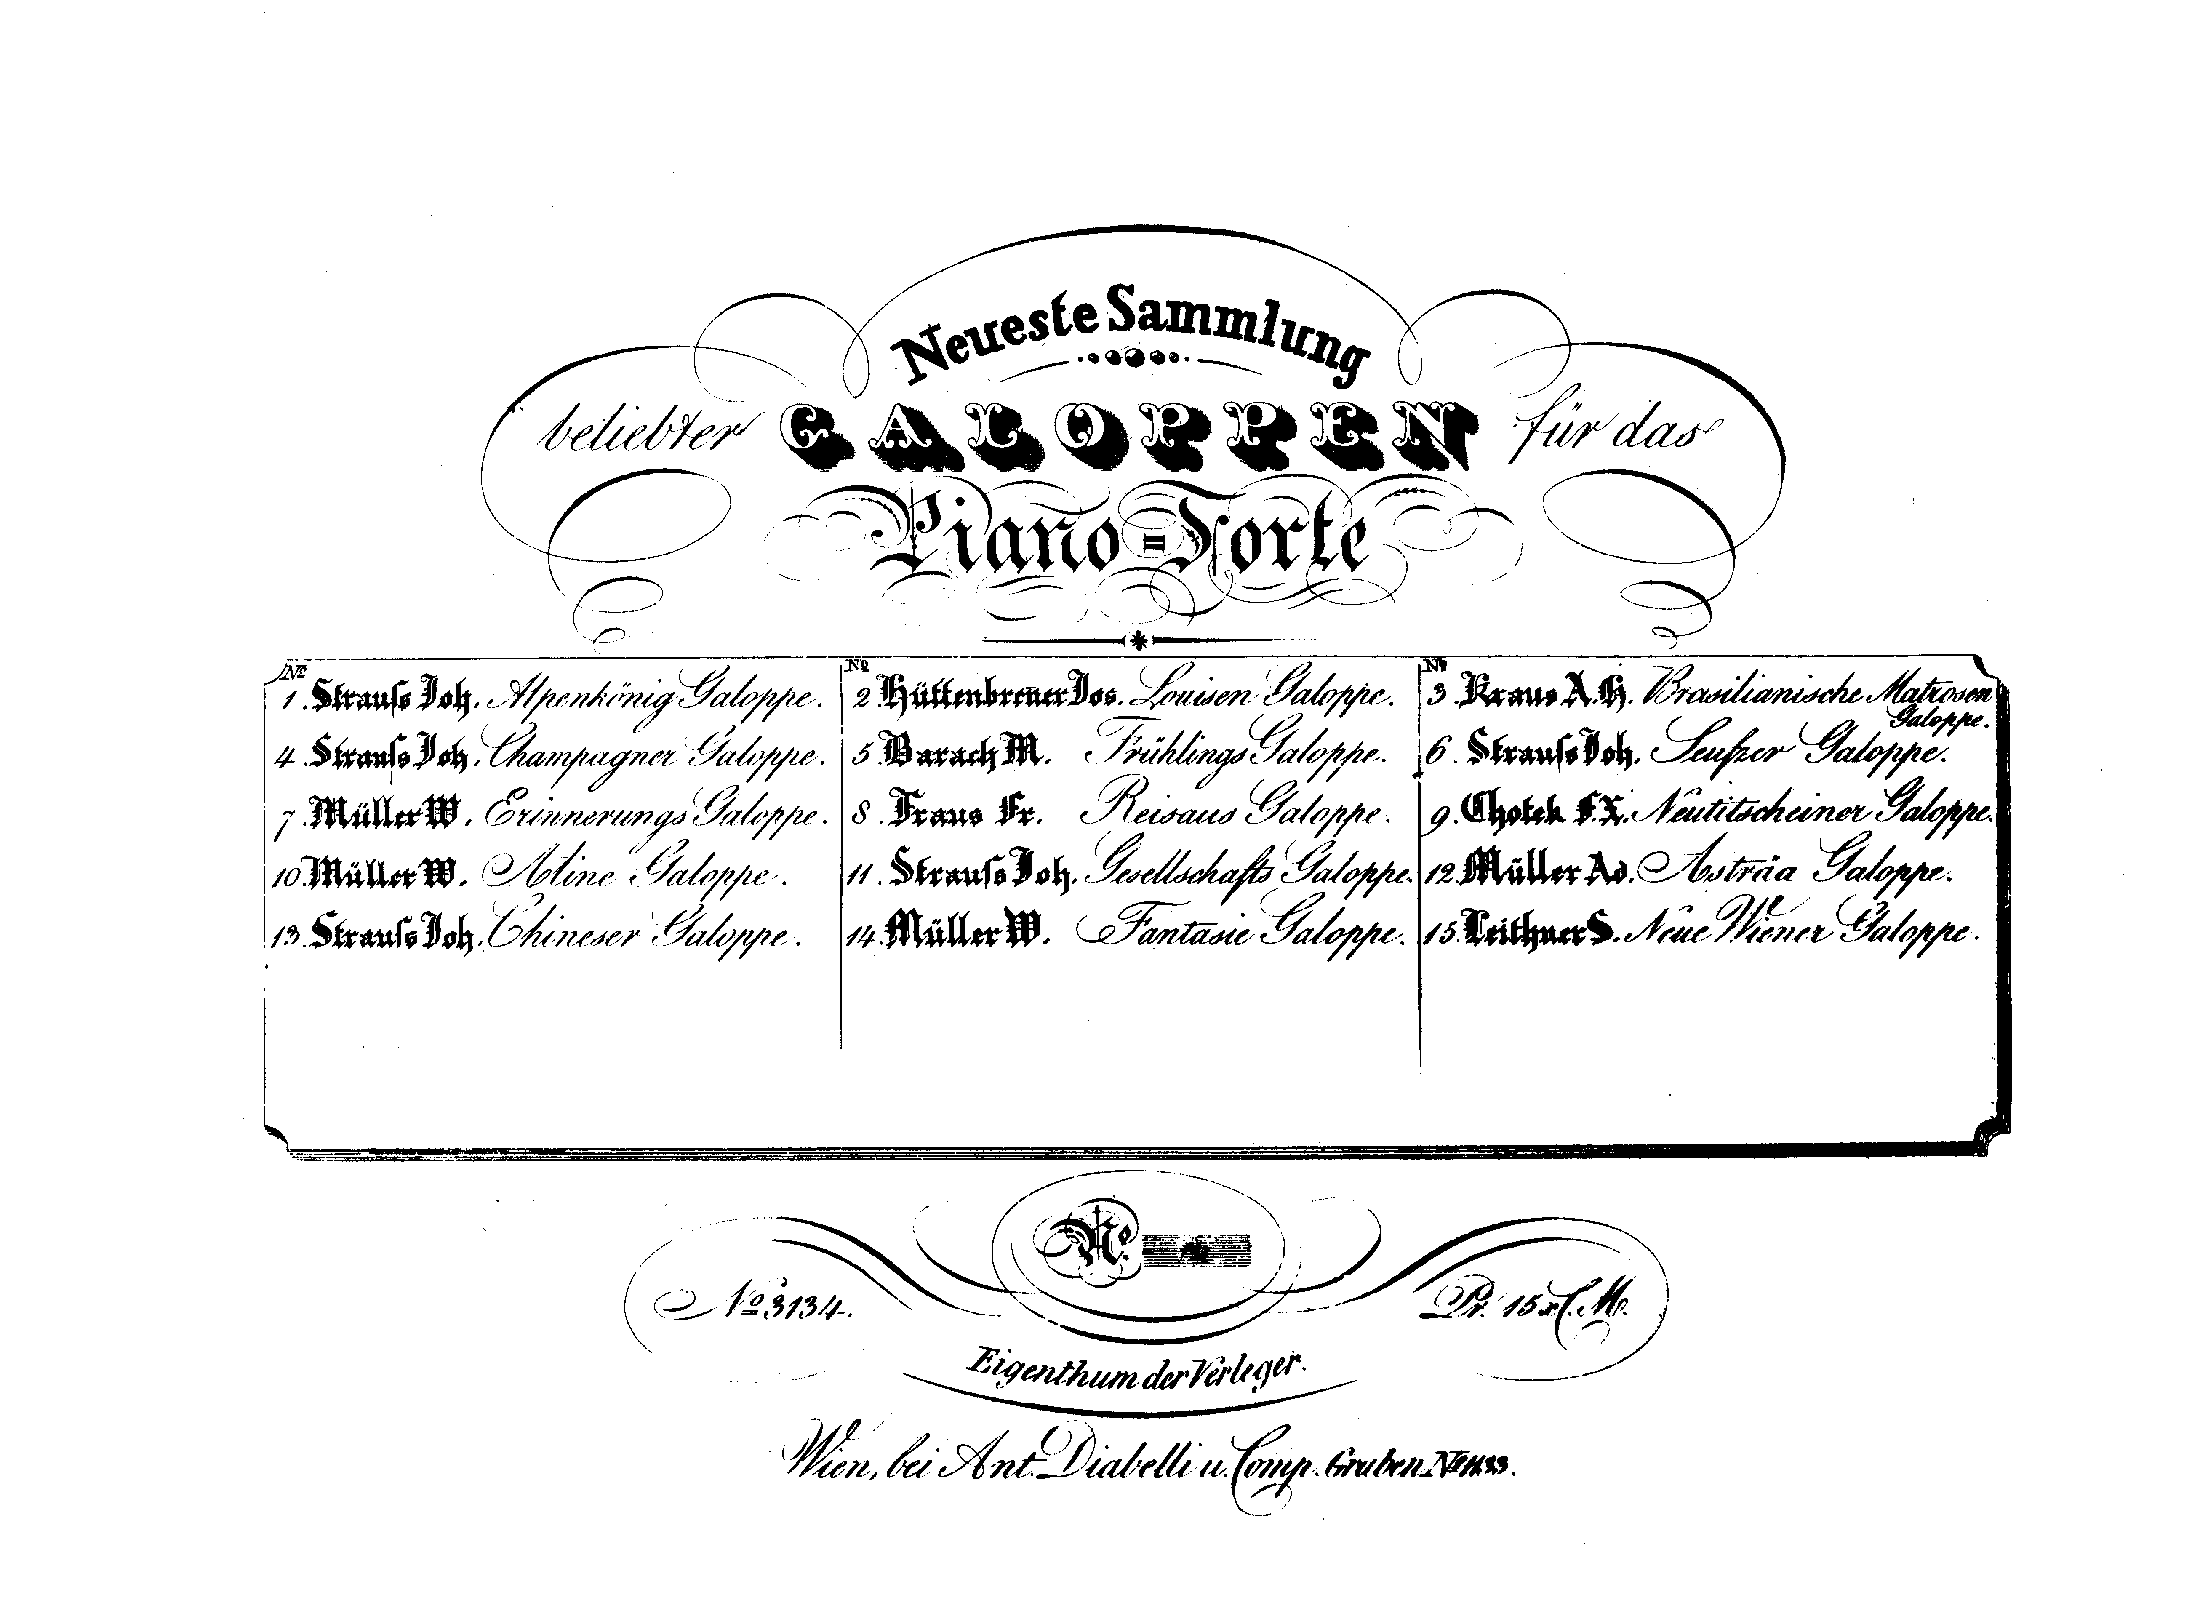 Neueste Sammlung
beliebter GALOPPEN für das
Piano=Forte
No No No
1. Strauss Joh. Alpenkönig Galoppe. 2 Hüttenbrener Jos. Louisen Galoppe. 3 Kraus A.H. Brasilianische Matrosen
Galoppe.
4 Strauss Joh. Champagner Galoppe. 5 Barach M. Frühlings Galoppe. 6 Strauss Joh. Seufzer Galoppe.
7 Müller W. Erinnerungs Galoppe. 8 Fr. Reisaus Galoppe. 9. Chotek F.X. Neutitscheiner Galoppe.
10 Müller W. Aline Galoppe. 11. Strauss Joh. Gesellschafts Galoppe. 12. Müller Ad. Asträa Galoppe.
13 Strauss Joh. Chineser Galoppe. 14. Müller W. Fantasie Galoppe. 15. Leithner S. Neue Wiener Galoppe.
No.
No 3134. Pr. 15 x C.M.
Eigenthum der Verleger.
Wien, bei Ant. Diabelli u. Comp. Graben No 1133.